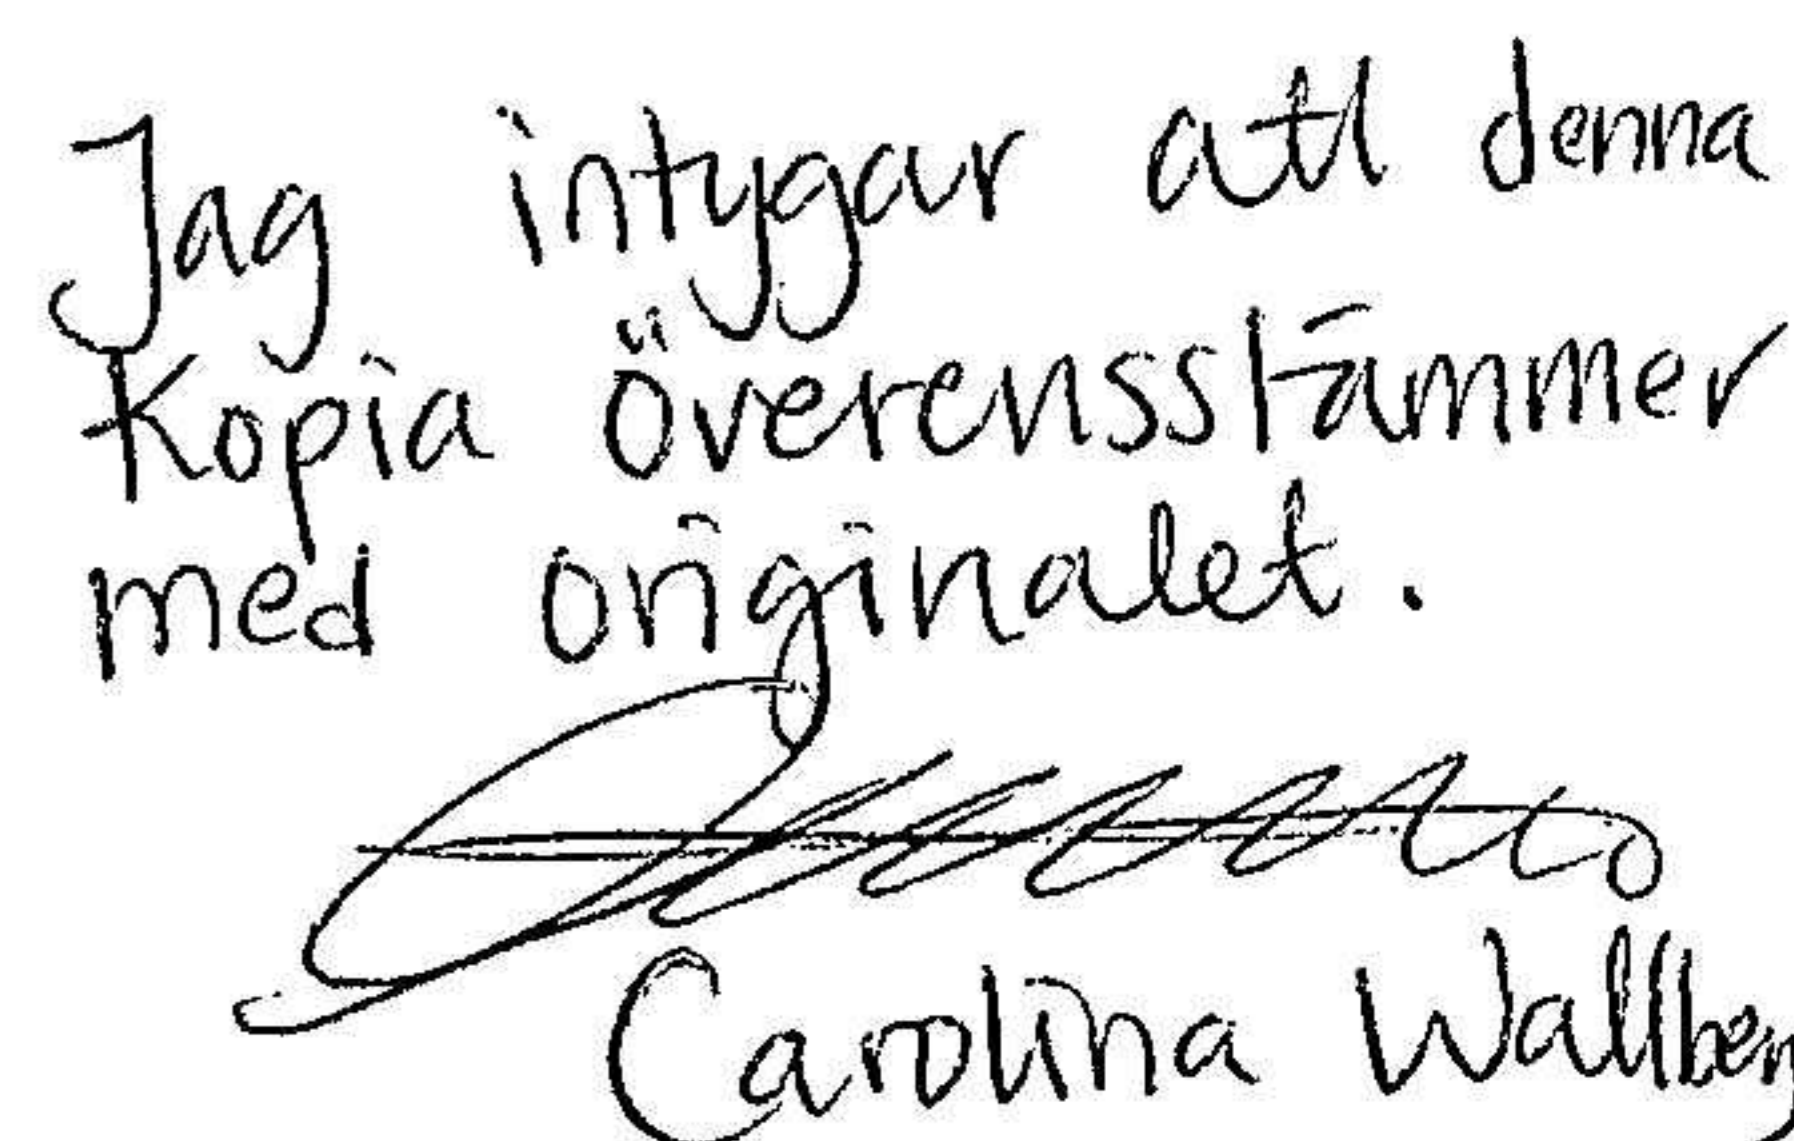 Jag intygar att denna
Kopia överensstämmer
med originalet.
Carolina Wallberg